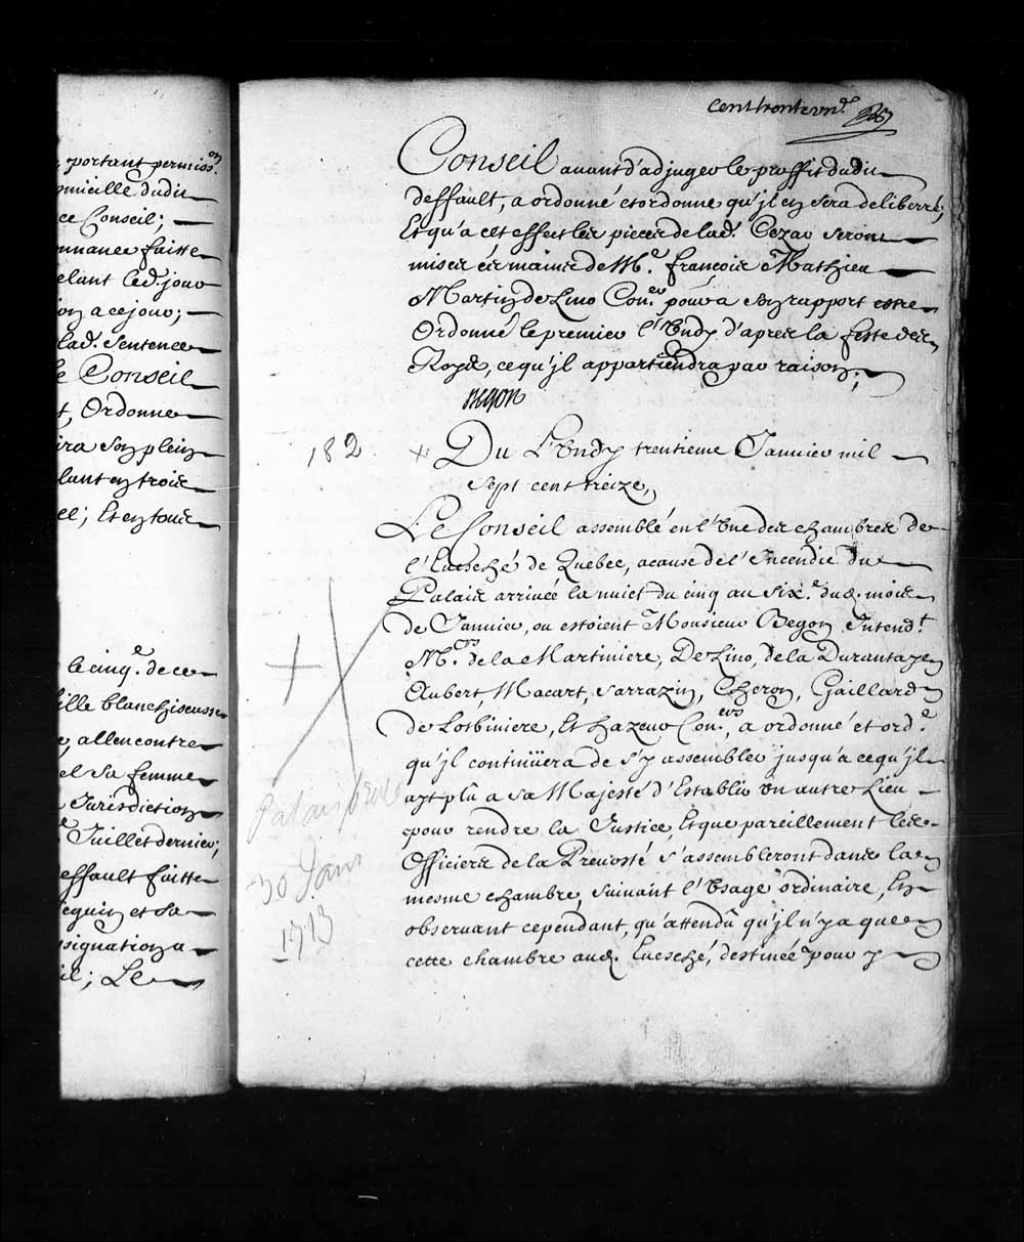 portant permiss.on
omicille dudit
ce Conseil;
nnance faitte
elant led. jour
ion a ce jour;
lad. Sentence
le Conseil
t, Ordonne
ira son plein
lant en trois
ee; Et en tous
le cinq.e de ce
ille blanchisseuse
e, allencontre
el Sa femme
Jurisdiction
e Juillet dernier;
effault faitte
equin et Sa
signation a
il; Le
Cent trente un.e
Conseil avant d'adjuger le proffit dudit
deffault, a ordonné et ordonne qu'jl en sera deliberré;
Et qu'a cet effect les pieces de lad. Cezar seront
mises és mains de M.e françois Mathieu
Martin de Lino Con.er pour a son rapport estre
Ordonné le premier l'Undy d'apres la feste des
Roys, ce qu'jl appartiendra par raison;
Begon
182
+ Du L'Undy trentieme Janvier mil
Sept cent treize,,
Le Conseil assemblé en l'une des chambres de
l'Evesché de Quebec, acause de l'Incendie du
Palais arrivée la nuict du cinq au six.e dud. mois
de Janvier, ou estoient Monsieur Begon Intend.t
M.rs de la Martiniere, De Lino, de la Durantaye
Aubert, Macart, Sarrazin, Cheron, Gaillard
de Lotbiniere, Et hazeur Con.ers, a ordonné et ord.e
qu'jl continüera de s'y assembler jusqu'a ce qu'jl
ayt plû a Sa Majesté d'Establir un autre Lieu
pour rendre la Justice, Et que pareillement les
Officiers de la Prevosté s'assembleront dans la
mesme chambre, suivant l'Usage ordinaire, En
observant cependant, qu'attendû qu'jl n'y a que
cette chambre aud. Evesché, destinée pour y
Palais brulé
30 Janv
1713